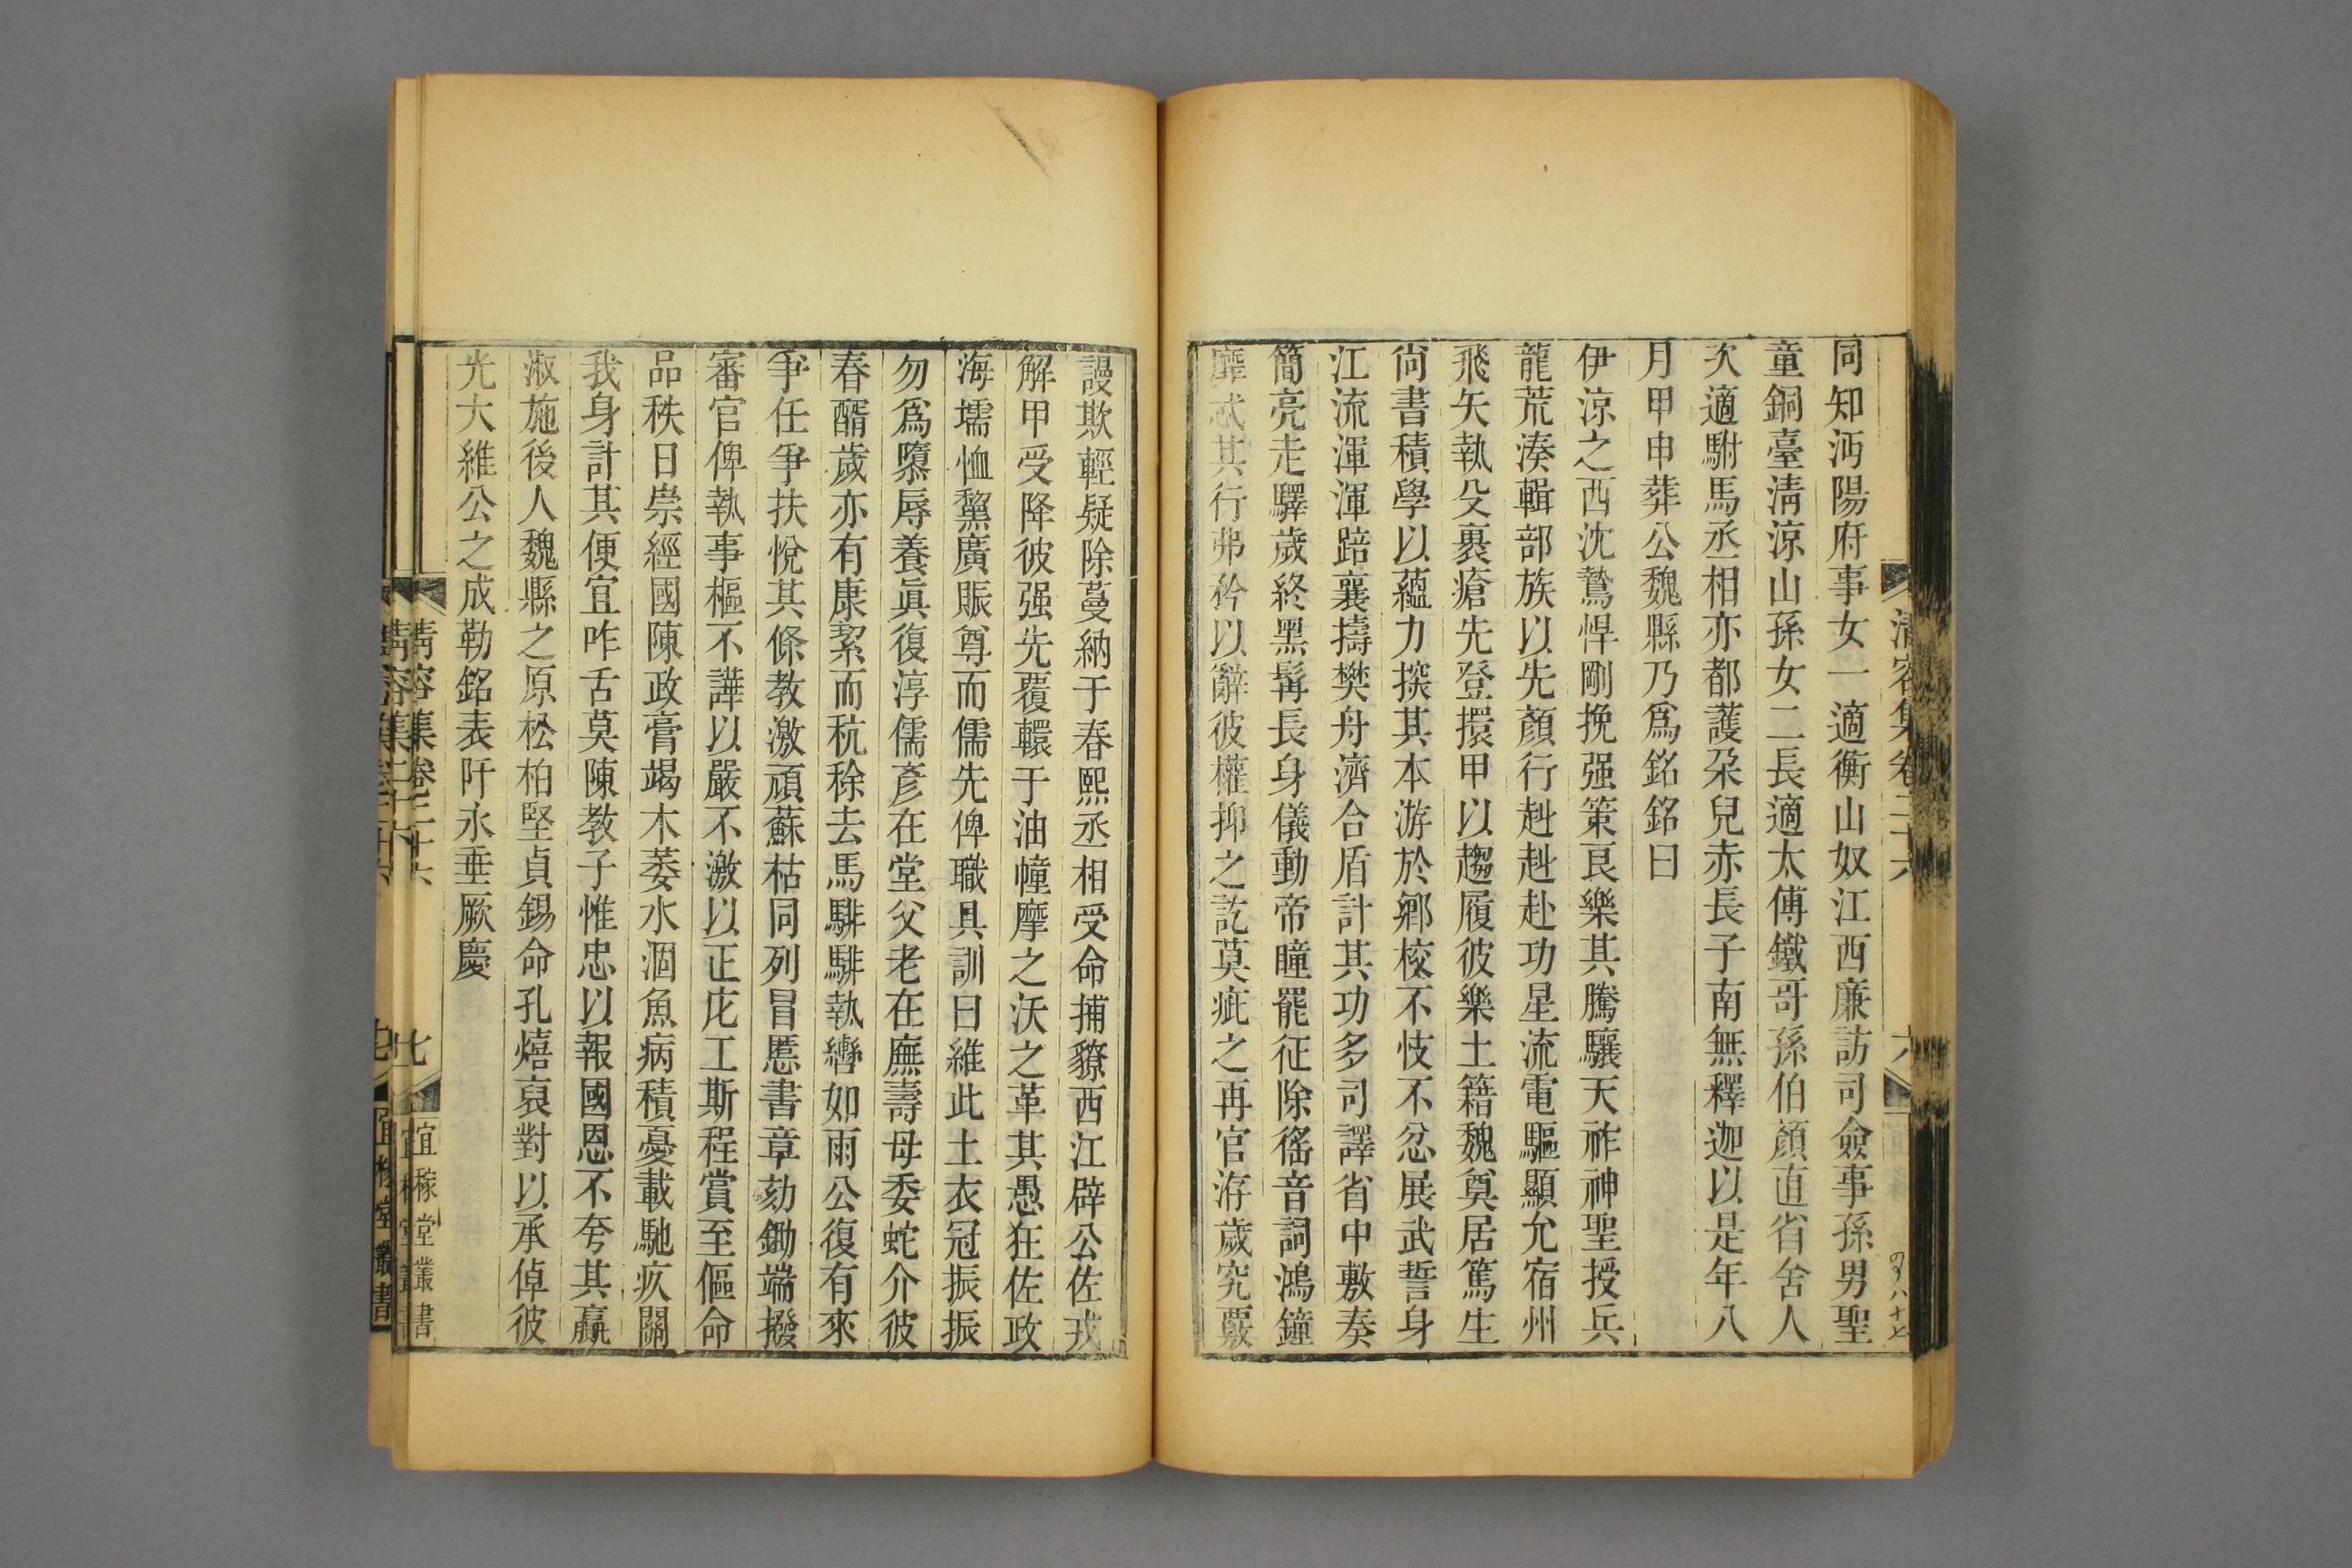 同知沔陽府事女一適衡山奴江西廉訪司僉事孫男聖
童銅臺淸涼山孫女二長適太傅鐵哥孫伯顏直省舍人
次適駙馬丞相亦都護朶兒赤長子南無釋迦以是年八
月甲申葬公魏縣乃爲銘銘曰
伊涼之西沈鷙悍剛挽强策良樂其騰驤天祚神聖授兵
龍荒湊輯部族以先顏行赳赳赴功星流電驅顯允宿州
飛矢執殳裹瘡先登擐甲以趨履彼樂土籍魏奠居篤生
尙書積學以蘊力探其本游於鄕校不忮不忿展武誓身
江流渾渾踣襄擣樊舟濟合盾計其功多司譯省中敷奏
簡亮走驛歲終黑髯長身儀動帝瞳罷征除徭音詞鴻鐘
靡忒其行弗矜以辭彼權抑之訖莫疵之再官洊歲究覈
謾欺輕疑除蔓納于春熙丞相受命捕獠西江辟公佐戎
解甲受降彼强先覆轘于油幢摩之沃之革其愚狂佐政
海壖恤鰲廣賑尊而儒先俾職具訓曰維此土衣冠振振
勿爲隳辱養眞復淳儒彥在堂父老在廡壽母委蛇介彼
春醑歲亦有康絜而秔稌去馬騑騑執轡如雨公復有來
爭任爭扶悅其條教激頑蘇枯同列冒慝書章劾鋤端揆
審官俾執事樞不譁以嚴不激以正庀工斯程賞至傴命
品秩日崇經國陳政膏竭木萎水涸魚病積憂載馳疢關
我身計其便宜咋舌莫陳教子惟忠以報國恩不夸其贏
淑施後人魏縣之原松柏堅貞錫命孔熺哀對以承倬彼
光大維公之成勒銘表阡永垂厥慶
淸容集卷二十六
六
淸容集卷二十六
七
宜稼堂叢書